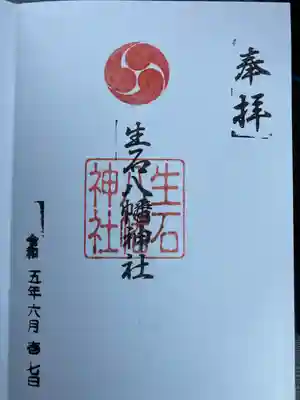 奉拝
生石八幡神社
生石
神社
令和五年六月壱七日